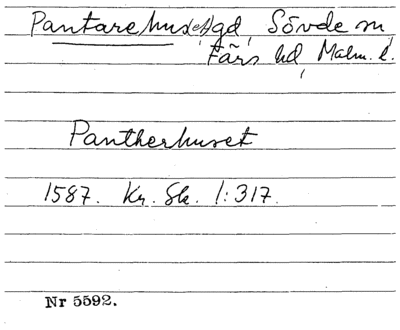 Pantarehus(et) gd, Sövde sn
Färs hd, Malm. l.
Pantherhuset
1587. Kr. Sk. 1:317.
Nr 5592.